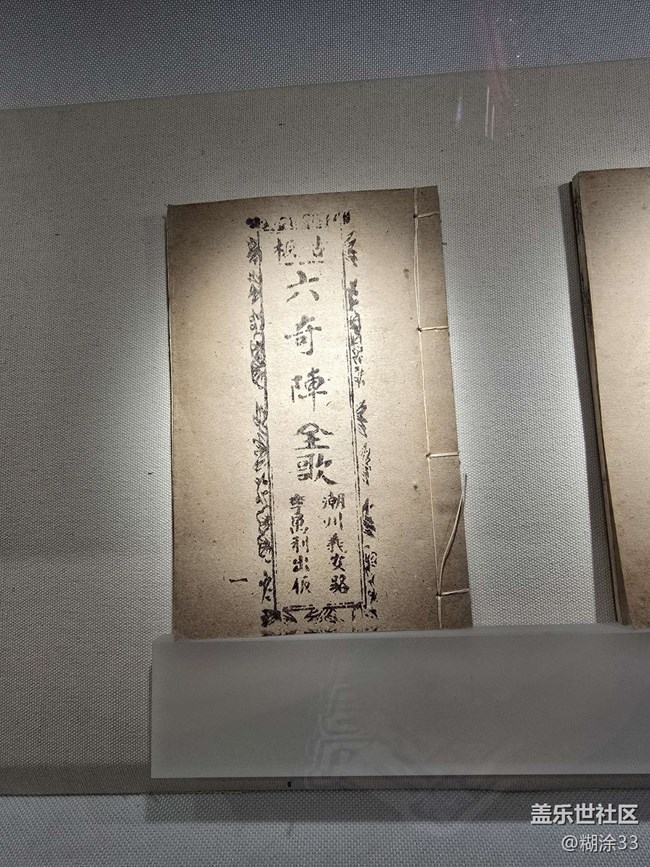 古板
六奇陣
全歌
潮州義安路
李萬利出版
一
盖乐世社区
@糊涂33